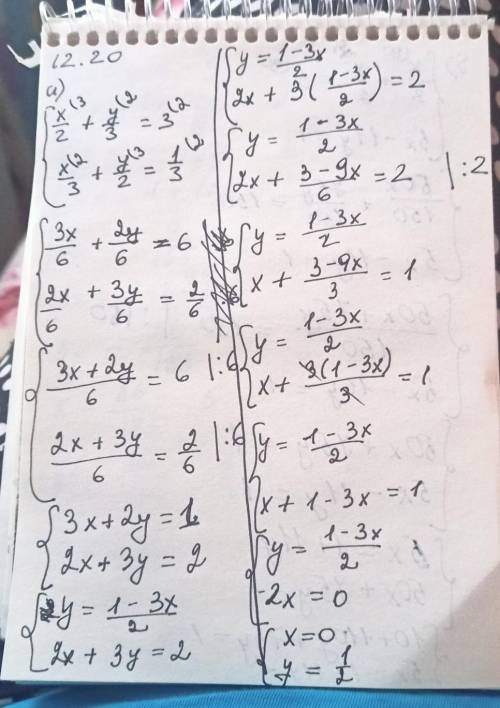 12.20
а)
{ x/2 (3 + y/3 (2 = 3 (2
{ x/3 (2 + y/2 (3 = 1/3 (2
{ 3x/6 + 2y/6 = 6
{ 2x/6 + 3y/6 = 2/6
{ (3x + 2y)/6 = 6 |:6
{ (2x + 3y)/6 = 2/6 |:6
{ 3x + 2y = 1
{ 2x + 3y = 2
{ y = (1 - 3x)/2
{ 2x + 3y = 2
{ y = (1 - 3x)/2
{ 2x + 3((1 - 3x)/2) = 2
{ y = (1 - 3x)/2
{ 2x + (3 - 9x)/6 = 2 |:2
{ y = (1 - 3x)/2
{ x + (3 - 9x)/3 = 1
{ y = (1 - 3x)/2
{ x + 3(1 - 3x)/3 = 1
{ y = (1 - 3x)/2
{ x + 1 - 3x = 1
{ y = (1 - 3x)/2
{ -2x = 0
{ x = 0
{ y = 1/2